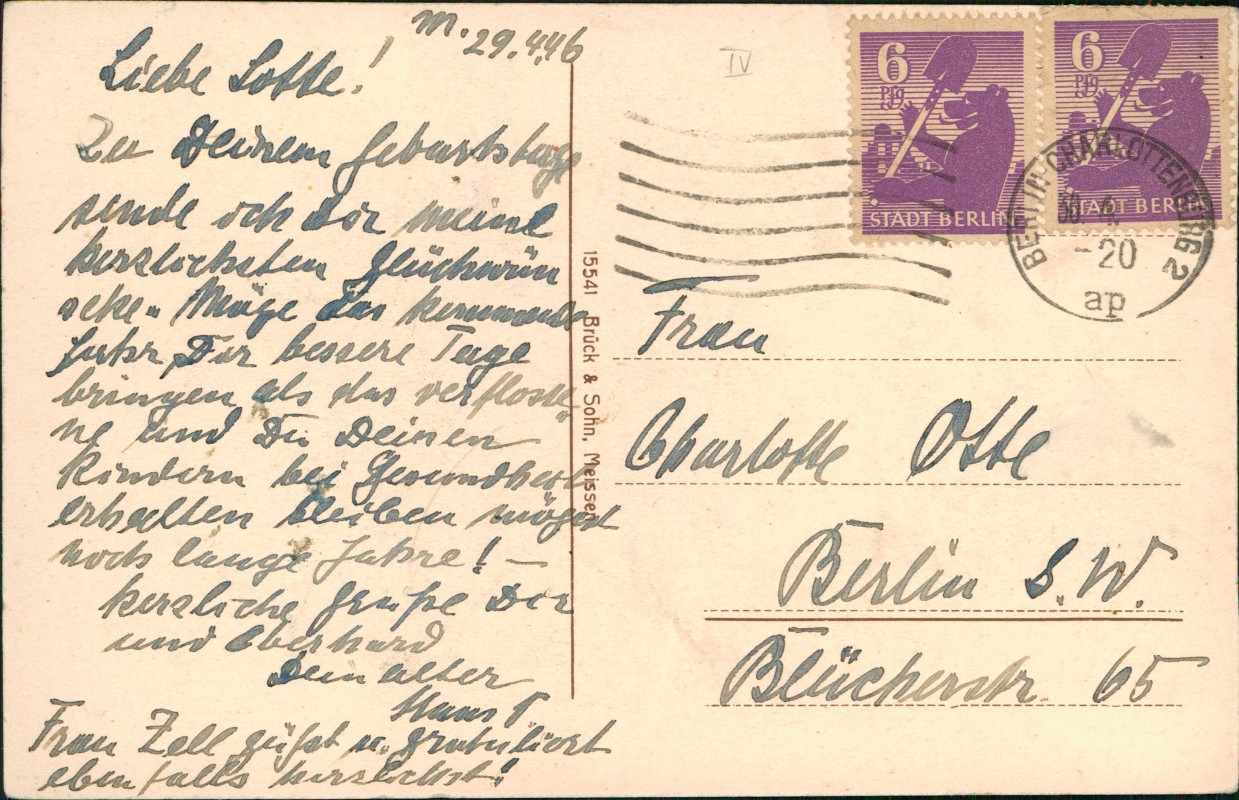 M. 29.4.46
Liebe Lotte!
Zu Deinem Geburtstage
sende ich Dir meine
herzlichsten Glückwün
sche. Möge das kommende
Jahr Dir bessere Tage
bringen als das verflosse
ne und Du Deinen
Kindern bei Gesundheit
erhalten bleiben mögest
noch lange Jahre! –
Herzliche Grüße Dir
und Eberhard
Dein alter
Hans
Frau Zell grüßt u. gratuliert
ebenfalls herzlichst!
15541 Brück & Sohn, Meissen
IV
6
Pfg
STADT BERLIN
6
Pfg
STADT BERLIN
BERLIN-CHARLOTTENBURG 2
-20
ap
Frau
Charlotte Otte
Berlin S.W.
Blücherstr. 65